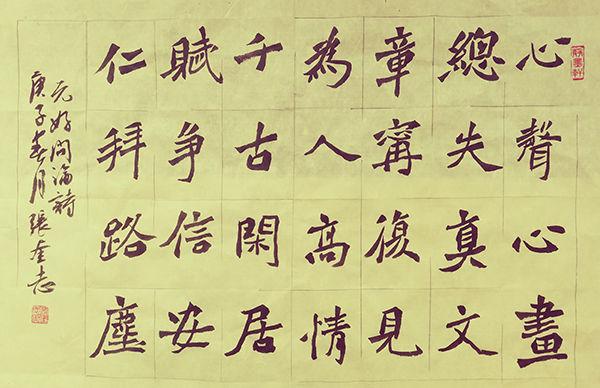 心聲心畫
總失真文
章甯復見
為人高情
千古閑居
賦争信安
仁拜路塵
元好問論詩
庚子春月張奎志